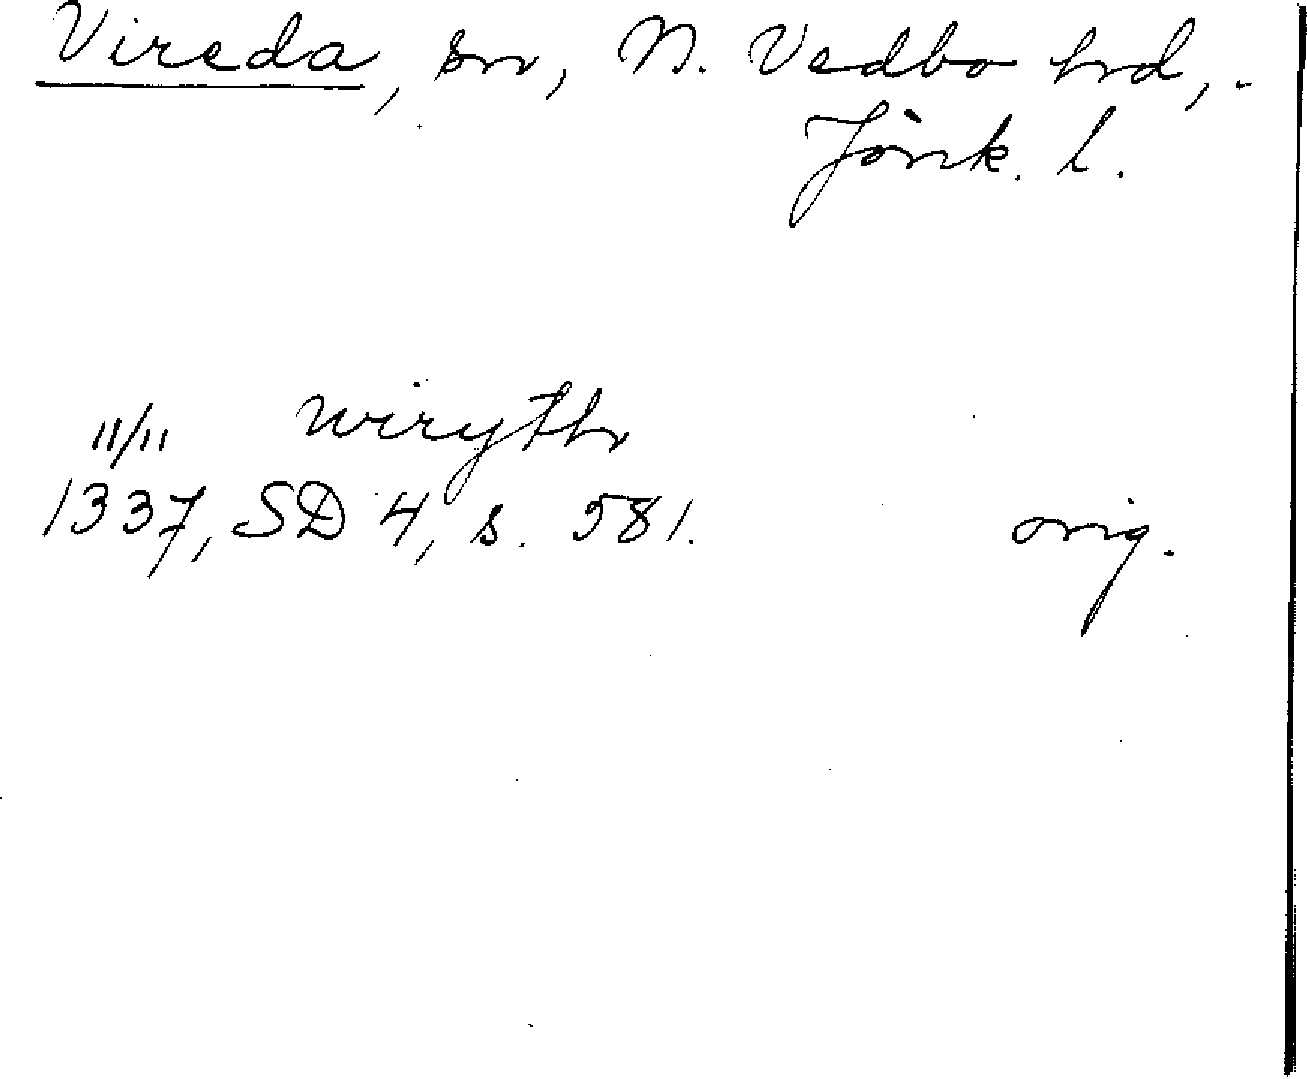 Vireda, sn, N. Vedbo hrd,
Jönk. l.
wiryth
11/11
1337, SD 4, s. 581. orig.